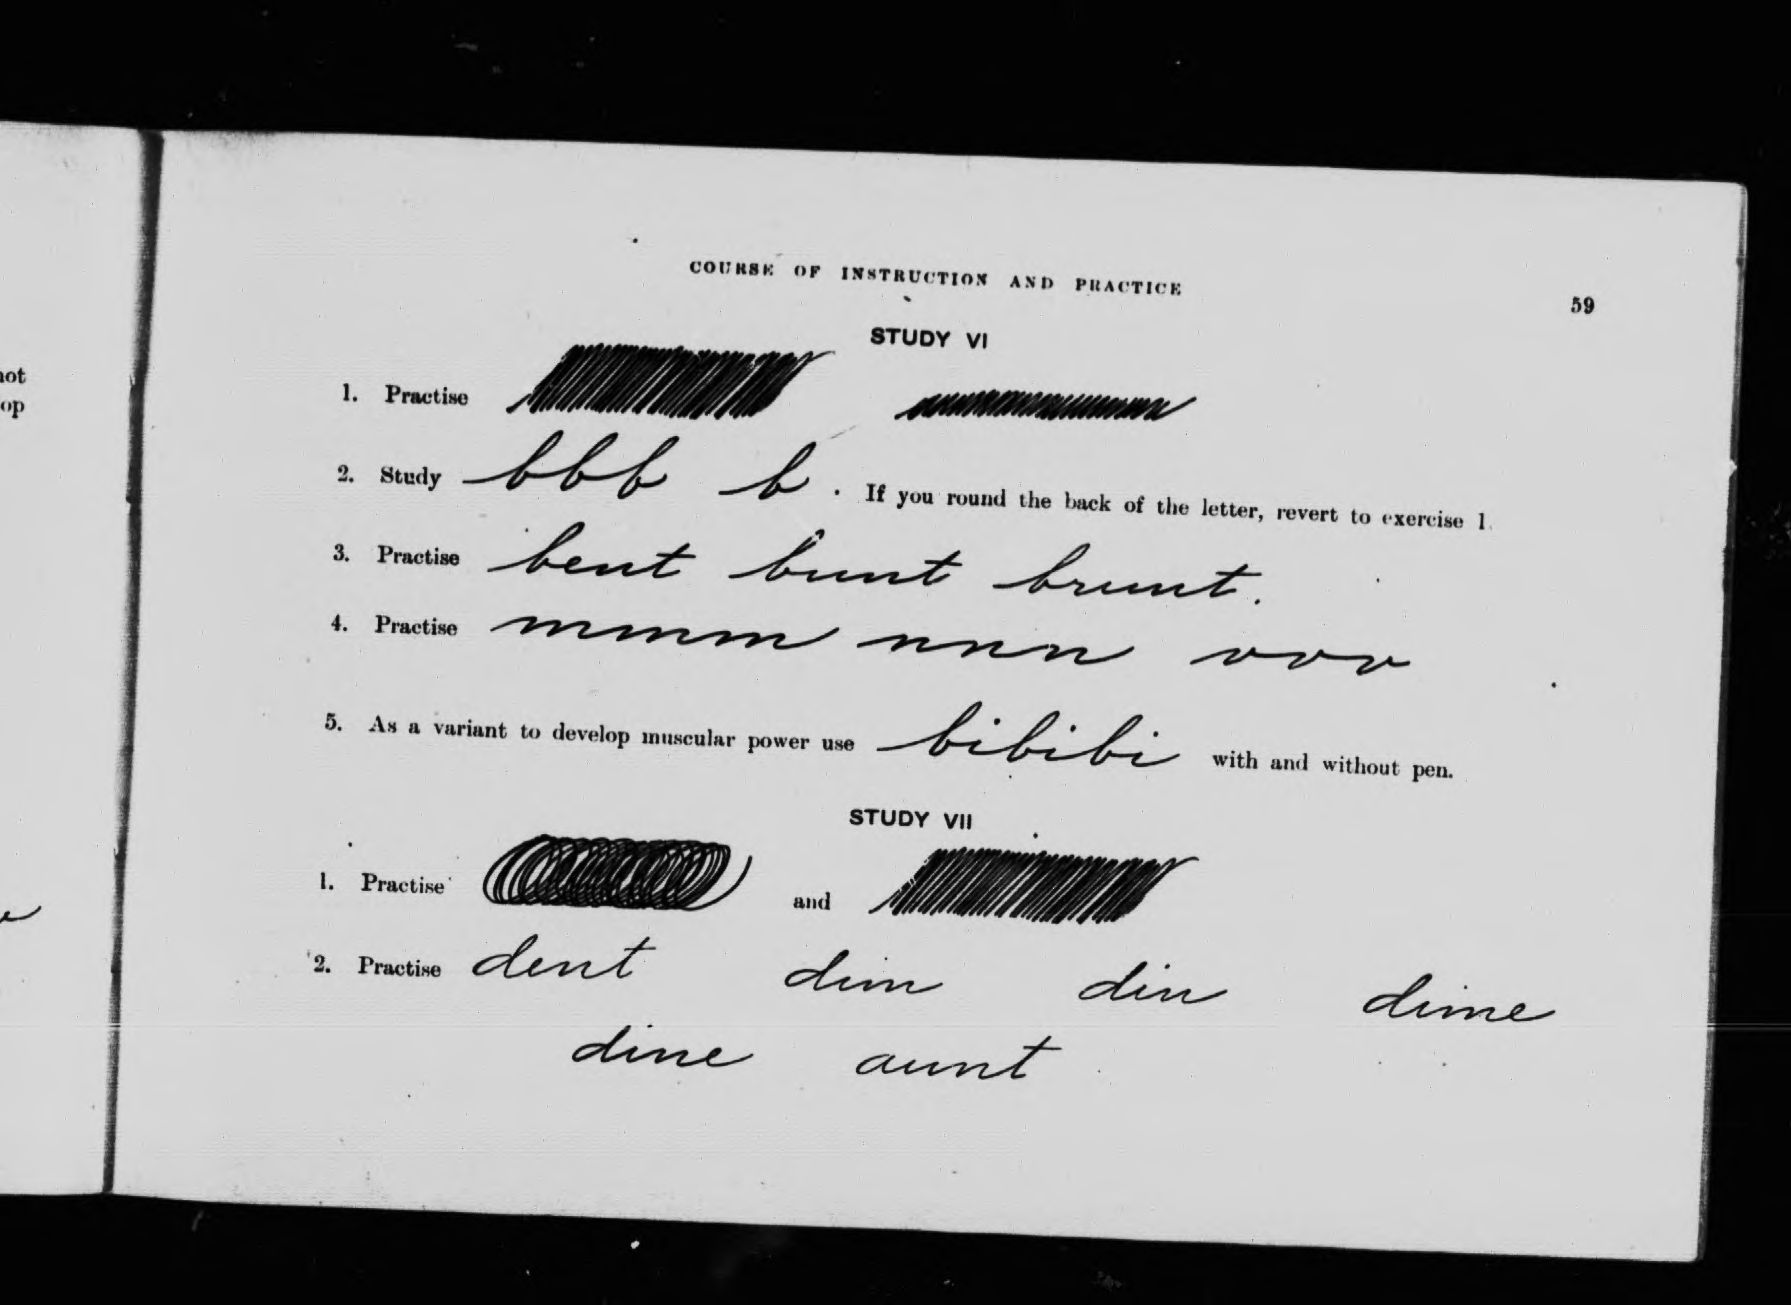 not
op
COURSE OF INSTRUCTION AND PRACTICE
59
STUDY VI
1. Practise
2. Study b b b b . If you round the back of the letter, revert to exercise 1.
3. Practise bent bunt brunt.
4. Practise m m m m n n n v v v
5. As a variant to develop muscular power use bibibi with and without pen.
STUDY VII
1. Practise and
2. Practise dent dim din dime
dine aunt